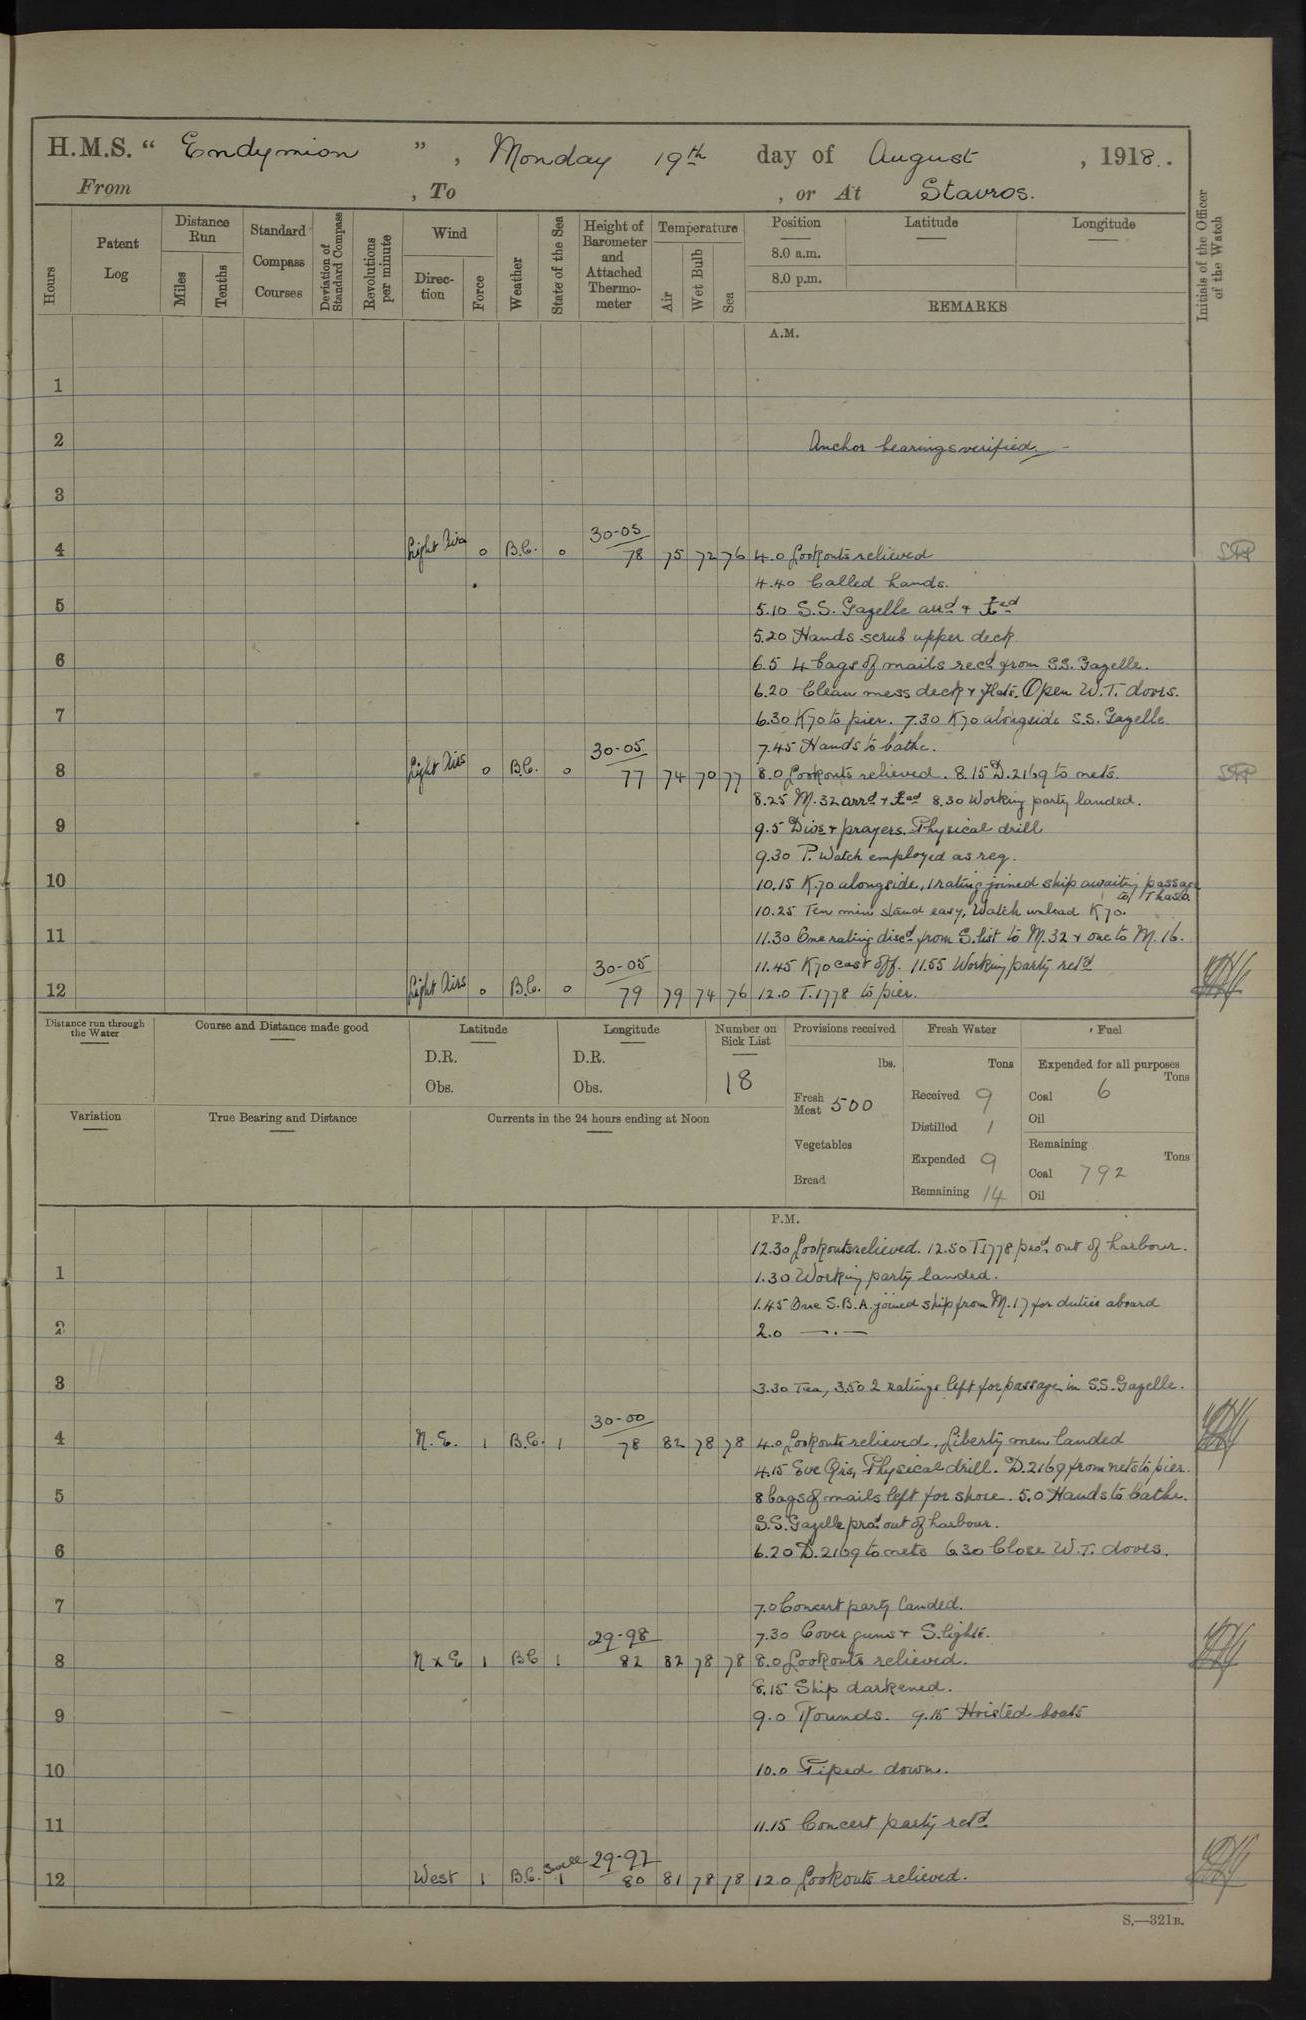 H.M.S. “ Endymion ” , Monday 19th day of August , 1918.
From , To , or At Stavros.
Hours
Patent Log
Distance Run
Miles
Tenths
Standard Compass Courses
Deviation of Standard Compass
Revolutions per minute
Wind
Direction
Force
Weather
State of the Sea
Height of Barometer and Attached Thermometer
Temperature
Air
Wet Bulb
Sea
Position
Latitude
Longitude
8.0 a.m.
8.0 p.m.
REMARKS
Initials of the Officer of the Watch
A.M.
1
2 Anchor bearings verified
3
30-05
4 Light Airs 0 B.C. 0 78 75 72 76 4.0 Lookouts relieved
4.40 Called hands.
5
5.10 S.S. Gazelle arrd &
5.20 Hands scrub upper deck
6
6.5 4 bags of mails recd from S.S. Gazelle.
6.20 Clean mess deck & flats. Open W.T. doors.
7
6.30 K70 to pier. 7.30 K70 alongside S.S. Gazelle
30-05
7.45 Hands to bathe.
8 Light Airs 0 B.C. 0 77 74 70 77 8.0 Lookouts relieved. 8.15 D.2169 to nets.
8.25 M.32 arrd & 8.30 Working party landed.
9
9.5 Divs & prayers. Physical drill
9.30 P. Watch employed as req.
10
10.15 K.70 alongside, 1 rating joined ship awaiting passage
to Thasos.
10.25 Ten min stand easy, Watch unload K70.
11
11.30 One rating discd from S. list to M.32 & one to M.16.
30-05
11.45 K70 cast off. 11.55 Working party retd
12 Light Airs 0 B.C. 0 79 79 74 76 12.0 T.1778 to pier.
Distance run through the Water
Course and Distance made good
Latitude
D.R.
Obs.
Longitude
D.R.
Obs.
Number on Sick List
18
Provisions received
lbs.
Fresh Meat 500
Vegetables
Bread
Fresh Water
Tons
Received 9
Distilled 1
Expended 9
Remaining 14
Fuel
Expended for all purposes
Tons
Coal 6
Oil
Remaining
Tons
Coal 792
Oil
Variation
True Bearing and Distance
Currents in the 24 hours ending at Noon
P.M.
12.30 Lookouts relieved. 12.50 T1778 procd out of harbour.
1
1.30 Working party landed.
1.45 One S.B.A. joined ship from M.17 for duties aboard
2
2.0 — . —
3
3.30 Tea, 3.50 2 ratings left for passage in S.S. Gazelle.
30-00
4 N.E. 1 B.C. 1 78 82 78 78 4.0 Lookouts relieved, Liberty men landed
4.15 Eve Qrs, Physical drill. D.2169 from nets to pier.
5
8 bags of mails left for shore. 5.0 Hands to bathe.
S.S. Gazelle procd out of harbour.
6
6.20 D.2169 to nets 6.30 Close W.T. doors.
7
7.0 Concert party landed.
29-98
7.30 Cover guns & S. lights.
8 N x E 1 BC 1 82 82 78 78 8.0 Lookouts relieved.
8.15 Ship darkened.
9
9.0 Rounds. 9.15 Hoisted boats
10
10.0 Piped down.
11
11.15 Concert party retd
29-97
12 West 1 B.C. 1 80 81 78 78 12.0 Lookouts relieved.
S.—321B.